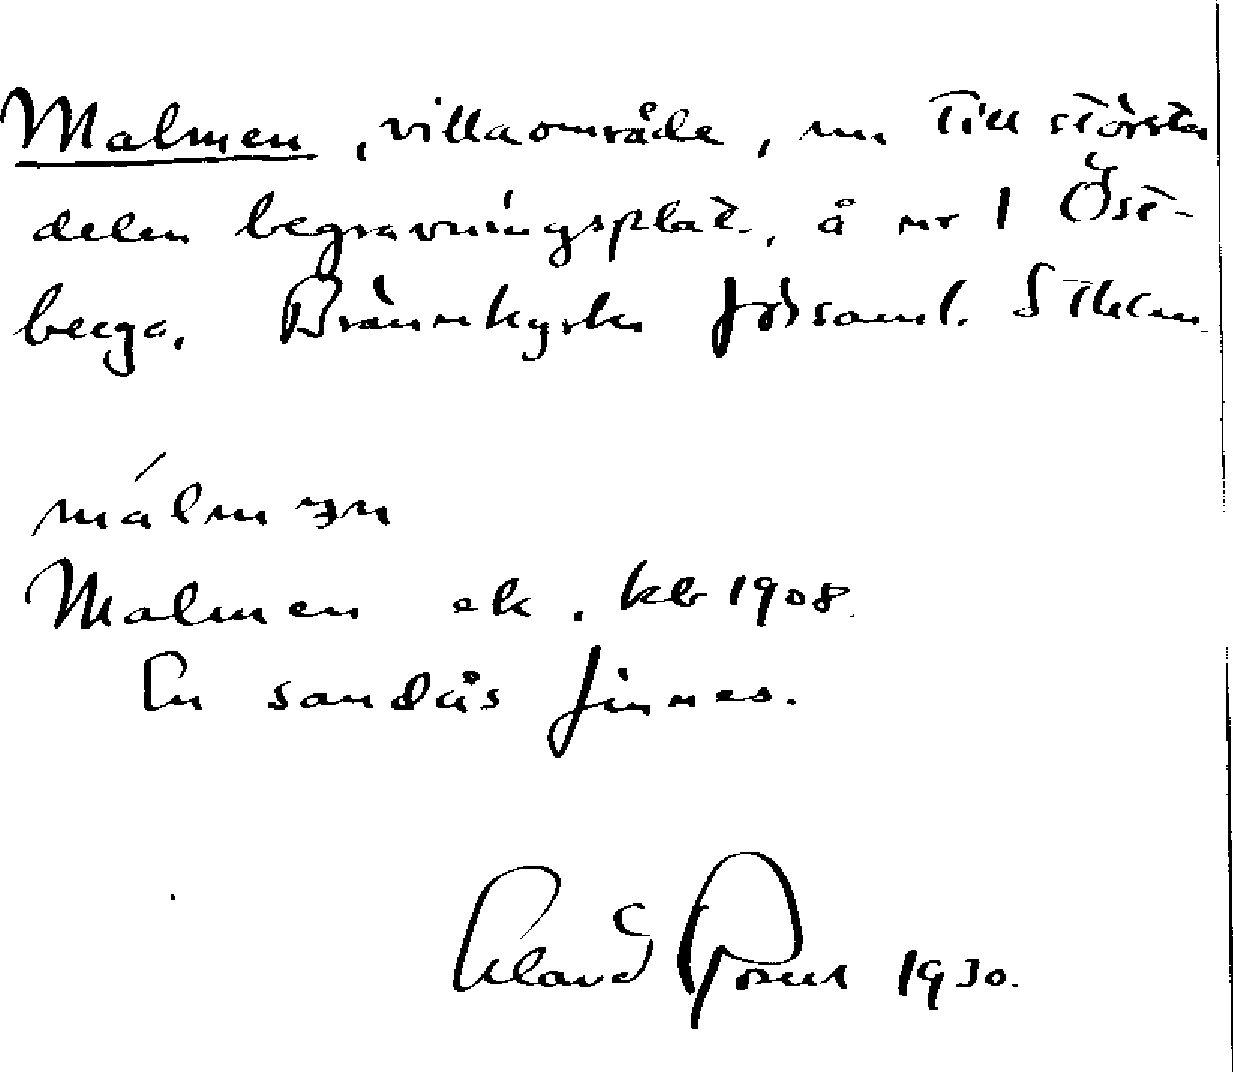 Malmen, villaområde, nu till största
delen begravningsplats, å nr 1 Öst-
berga. Brännkyrka församl. Sthlm
málmən
Malmen ek. kb 1908.
En sandås finnes.
1930.